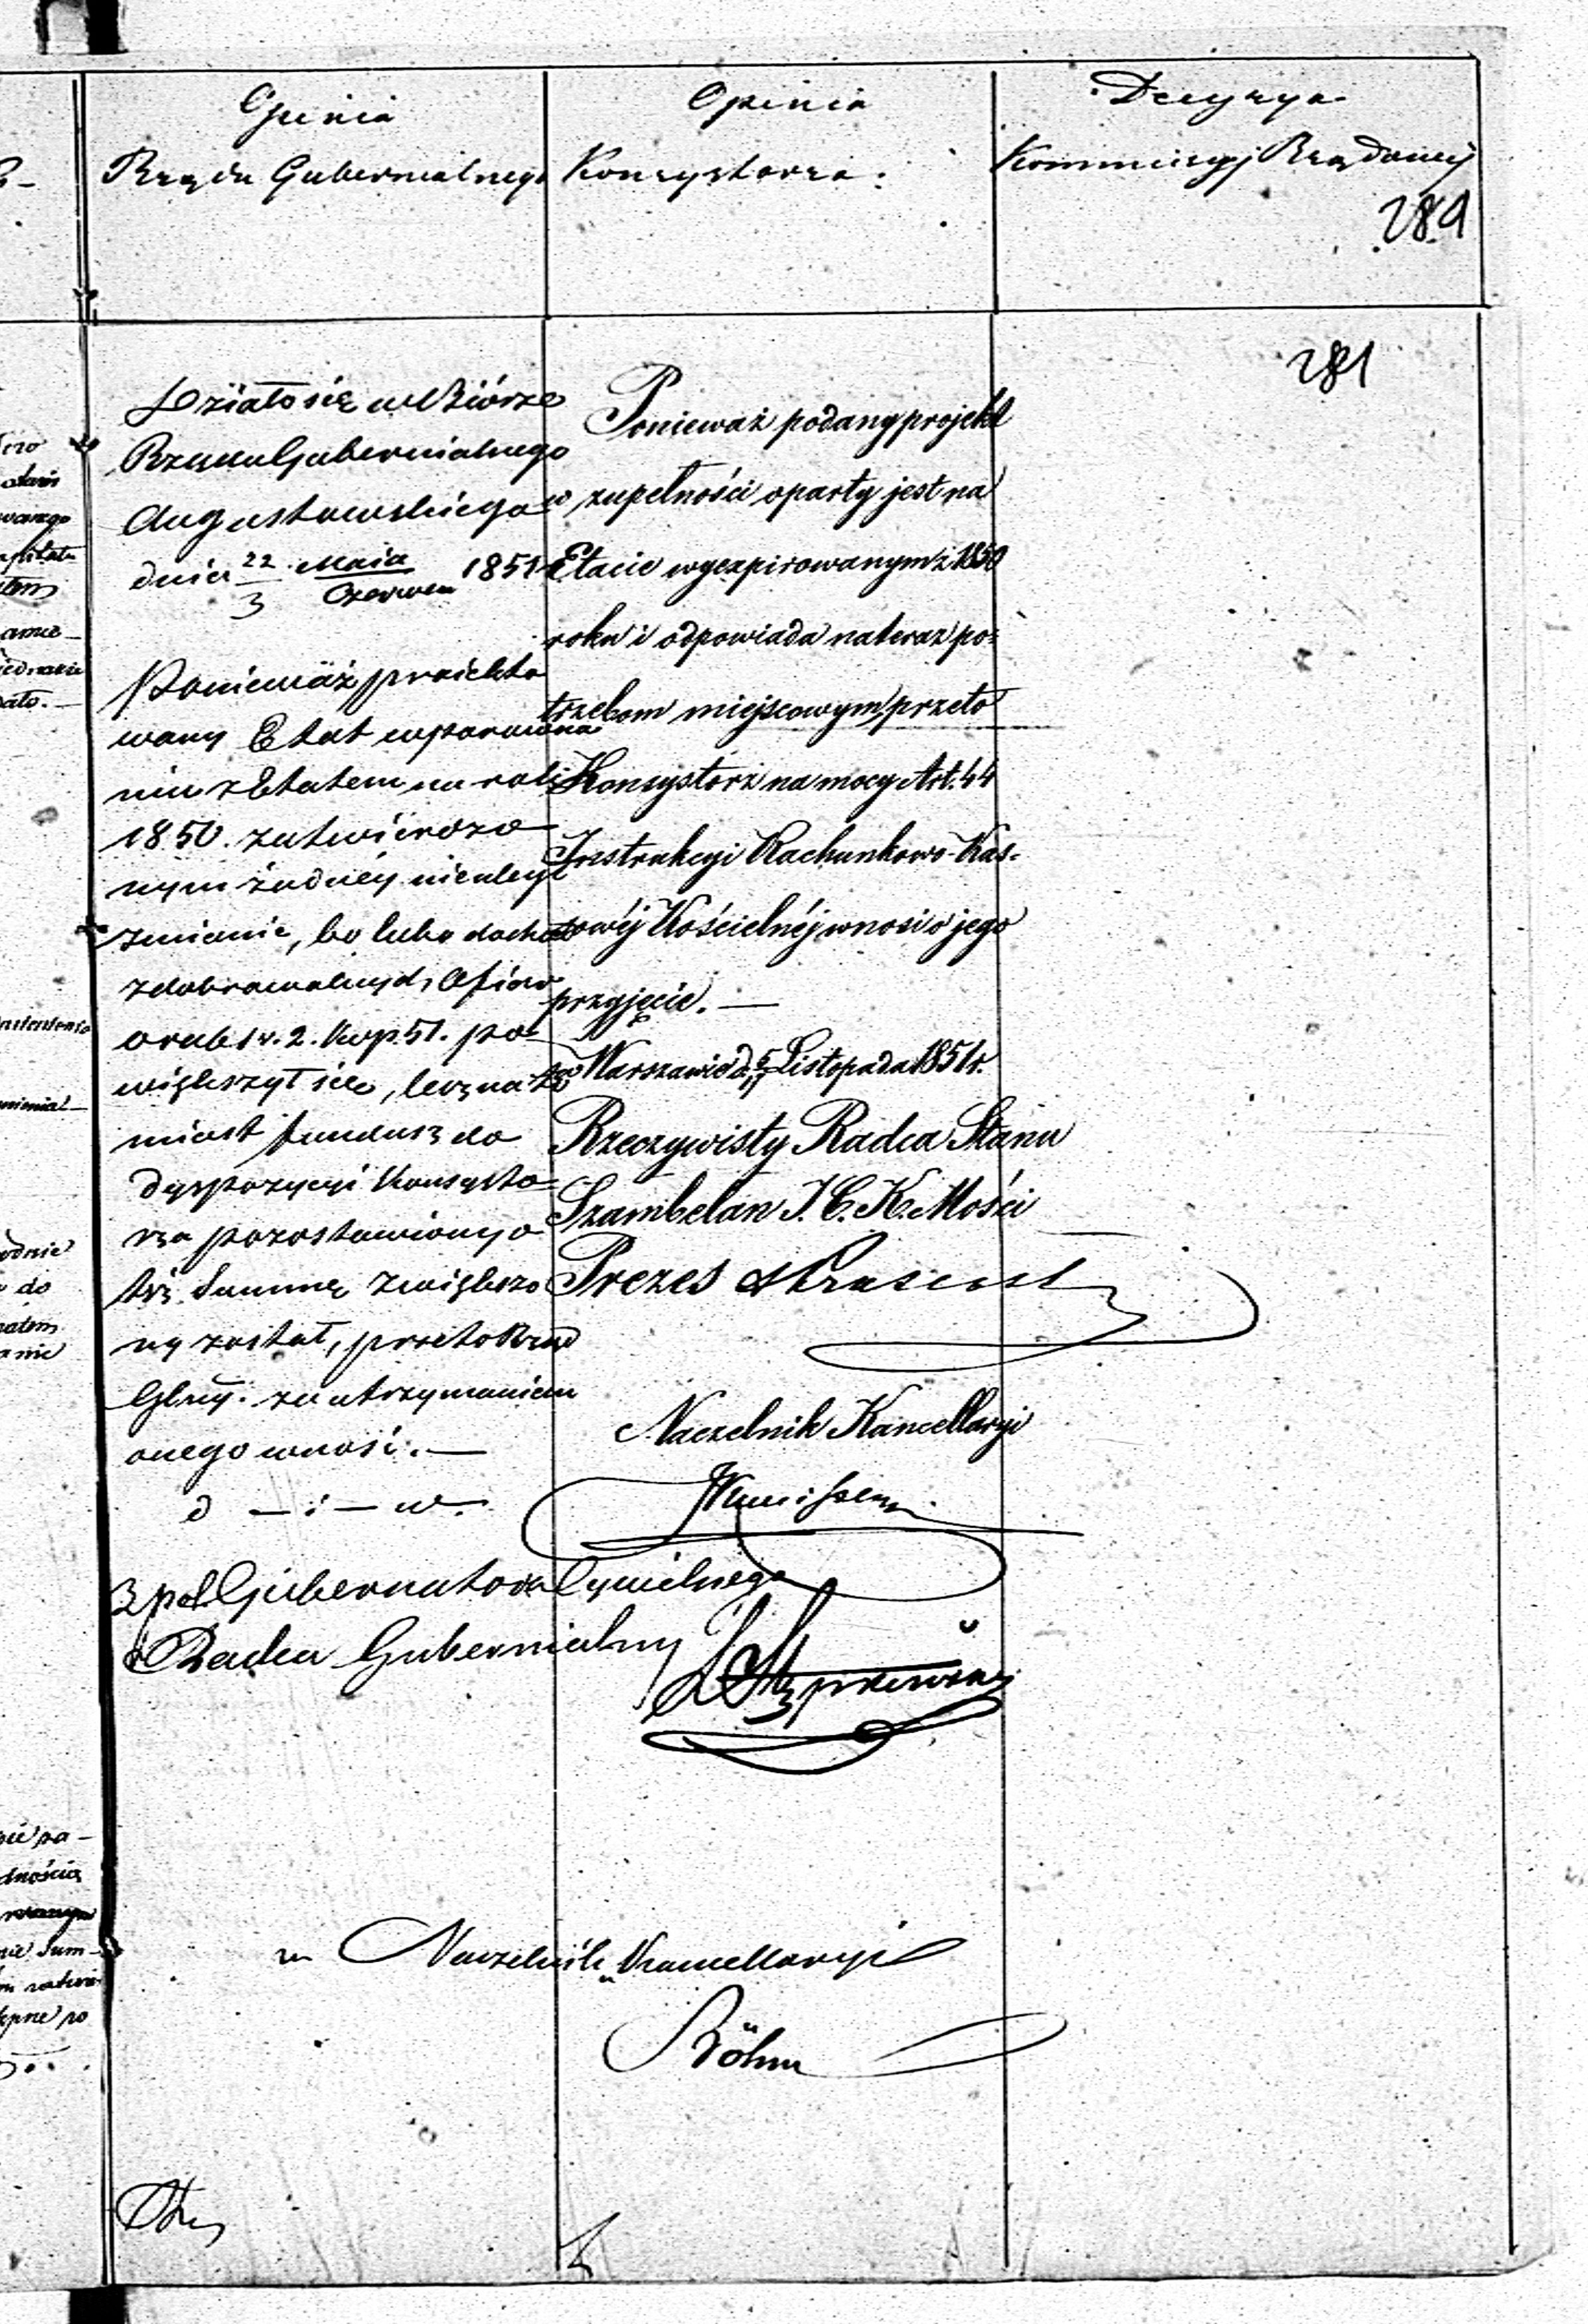 Opinia
Rządu Gubernialnego
Opinia
Konsystorza.
Decyzya
Kommissyj Rządowej
289
281
Działo się w Biórze
Rządu Gubernialnego
Augustowskiego
dnia 22 Maja 1851
3 Czerwca
Ponieważ projekto
wany Etat w porówna
niu z Etatem na rok
1850. zatwierdzo
nym żadnéj nieuległ
zmianie, bo lubo dochód
z dobrowolnych Ofiar
o rubsr. 2. kop. 51. po-
większył się, lecz nato
miast fundusz do
dyspozycyi Konsysto=
rza pozostawiony o
też Summę zwiększo
ny został, przeto Rząd
Glny. za utrzymaniem
onego wnosi. —
w zupełności oparty jest na
Ponieważ podany projekt
Etacie wyexpirowanym z 1850
roku i odpowiada na teraz po=
trzebom miejscowym, przeto
Konsystorz na mocy Art. 44
Instrukcyi Rachunkowo-Kas=
sowéj Kościelnéj wnosi o jego
przyjęcie. —
w Warszawie d. 5/ Listopada 1851 r.
Rzeczywisty Radca Stanu
Szambelan J. C. K. Mości
Prezes
Naczelnik Kancellaryi
z pol. Gubernatora Cywilnego
Radca Gubernialny
za Naczelnik Kancellaryi
Böhm